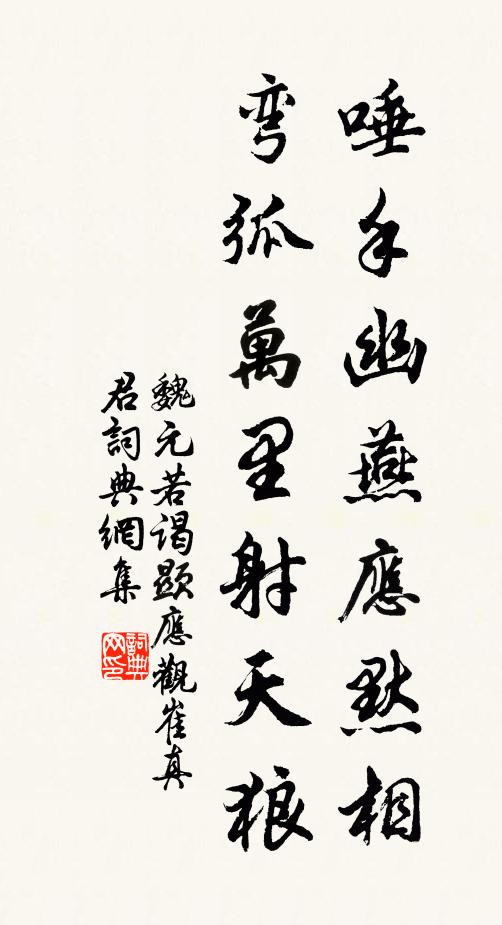 唾手幽燕應默相
彎弧萬里射天狼
魏元若謁顯應觀崔真
君詞典網集
詞典
网印